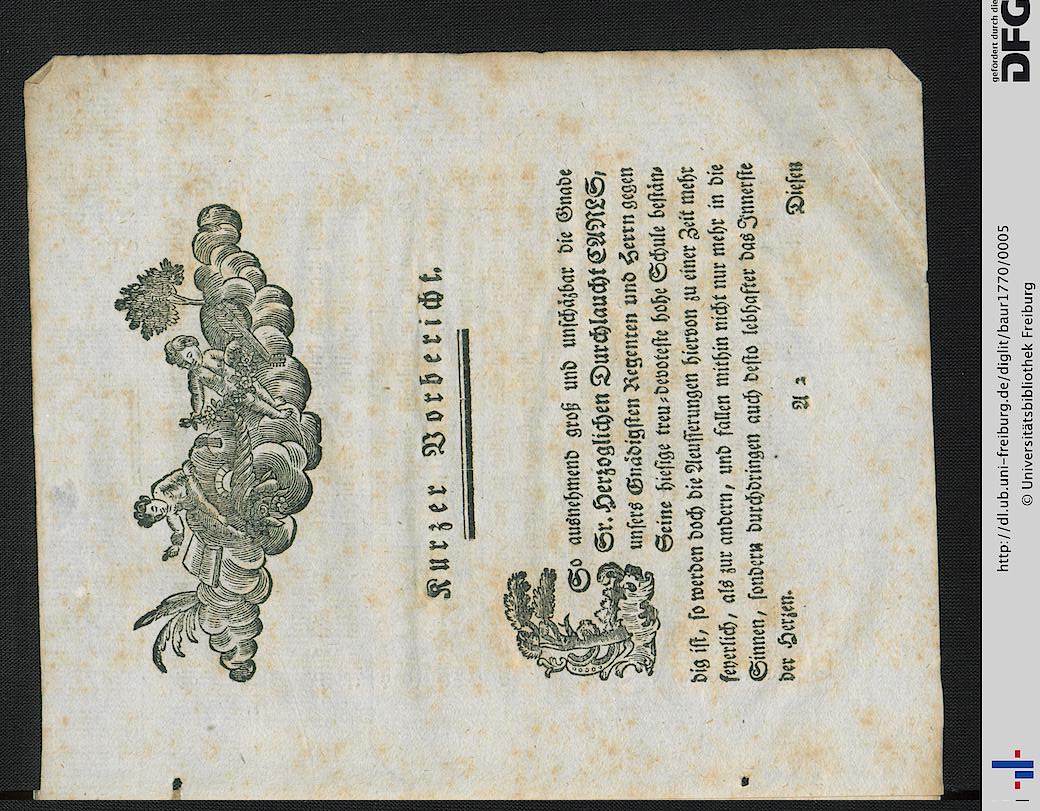 Kurzer Vorbericht.
So ausnehmend groß und unschäzbar die Gnade
Sr. Herzoglichen Durchlaucht CARLS,
unsers Gnädigsten Regenten und Herrn gegen
Seine hiesige treu-devoteste hohe Schule bestän-
dig ist, so werden doch die Aeusserungen hiervon zu einer Zeit mehr
feyerlich, als zur andern, und fallen mithin nicht nur mehr in die
Sinnen, sondern durchdringen auch desto lebhafter das Innerste
der Herzen.
A 2
Diesen
http://dl.ub.uni-freiburg.de/diglit/baur1770/0005
© Universitätsbibliothek Freiburg
gefördert durch die
DFG